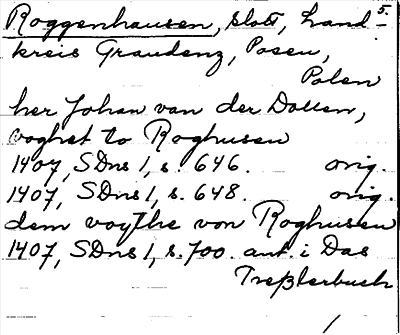 5.
Roggenhausen, slott, Land-
kreis Graudenz, Posen,
Polen
her Johan van der Dollen,
voghet to Roghusen
1407, SDns 1, s. 646. orig.
1407, SDns 1, s. 648. orig.
dem voythe von Roghusen
1407, SDns 1, s. 700. ant. i Das
Treßlerbuch
/